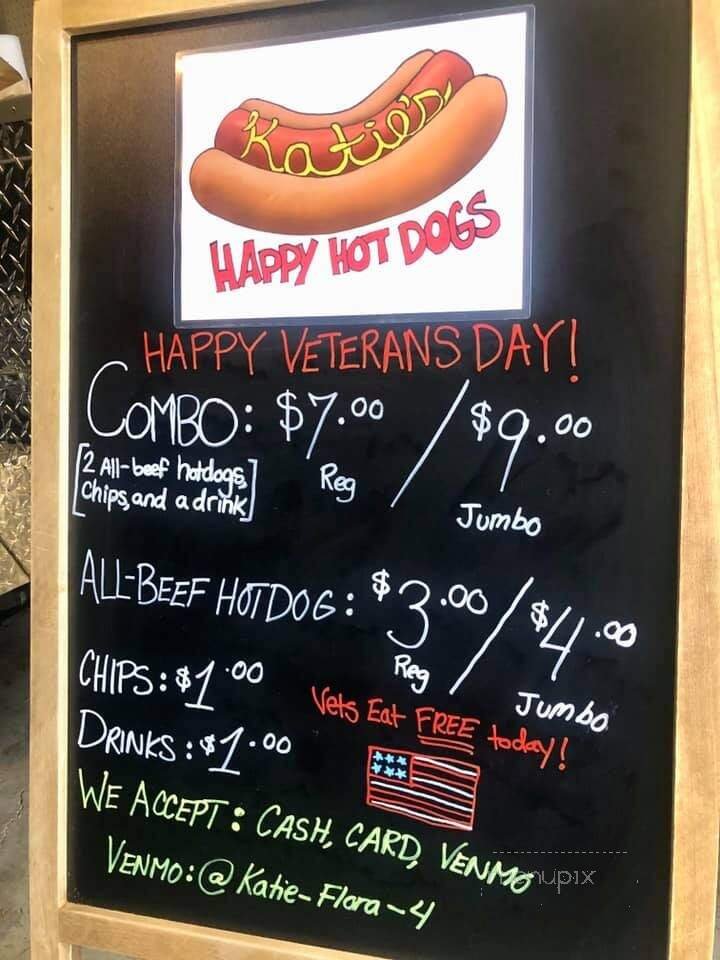 Katie's
HAPPY HOT DOGS
HAPPY VETERANS DAY!
COMBO: $7.00 / $9.00
[2 All-beef hotdogs,
Chips, and a drink]
Reg
Jumbo
ALL-BEEF HOTDOG: $3.00 / $4.00
Reg
Jumbo
CHIPS: $1.00
Vets Eat FREE today!
DRINKS: $1.00
WE ACCEPT: CASH, CARD, VENMO
VENMO: @Katie-Flora-4
menupix